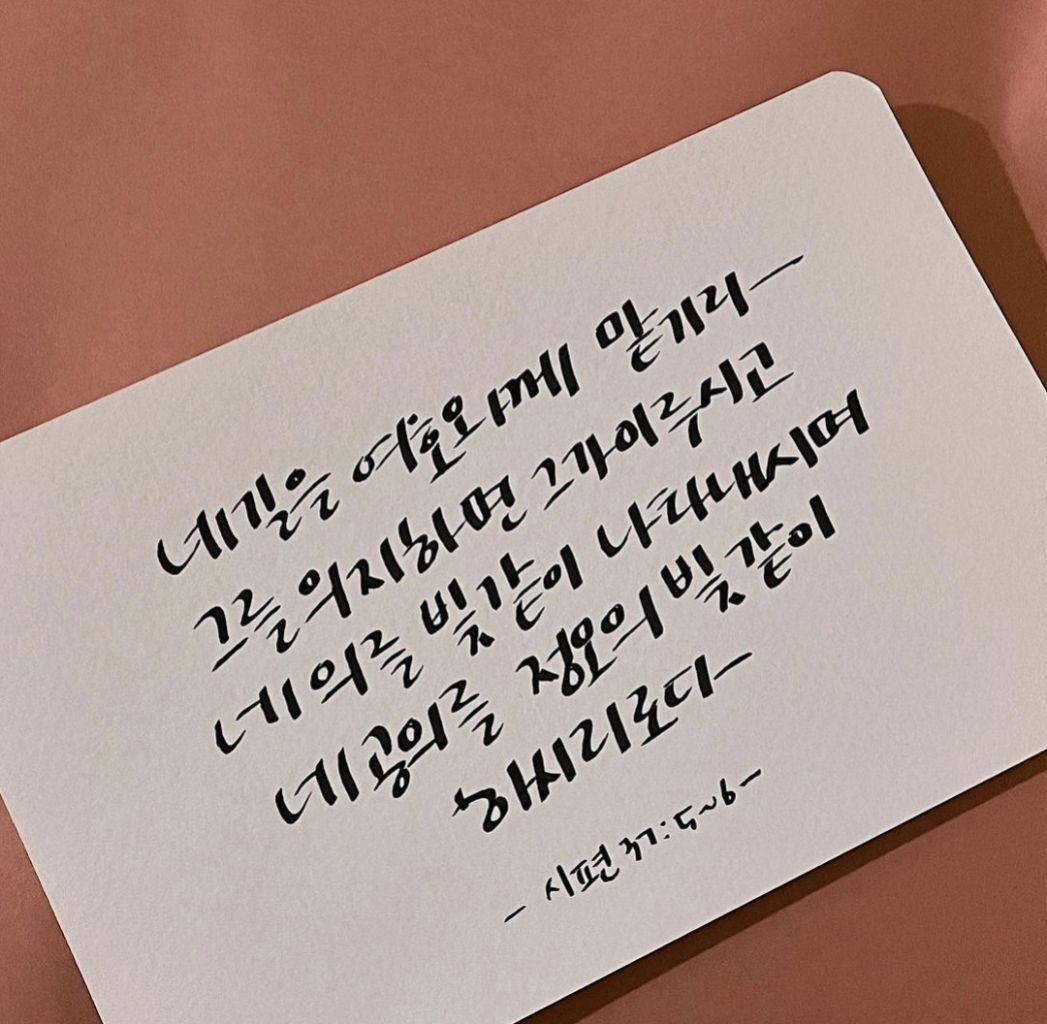 네 길을 여호와께 맡기라
그를 의지하면 그가 이루시고
네 의를 빛같이 나타내시며
네 공의를 정오의 빛같이
하시리로다
- 시편 37:5~6 -